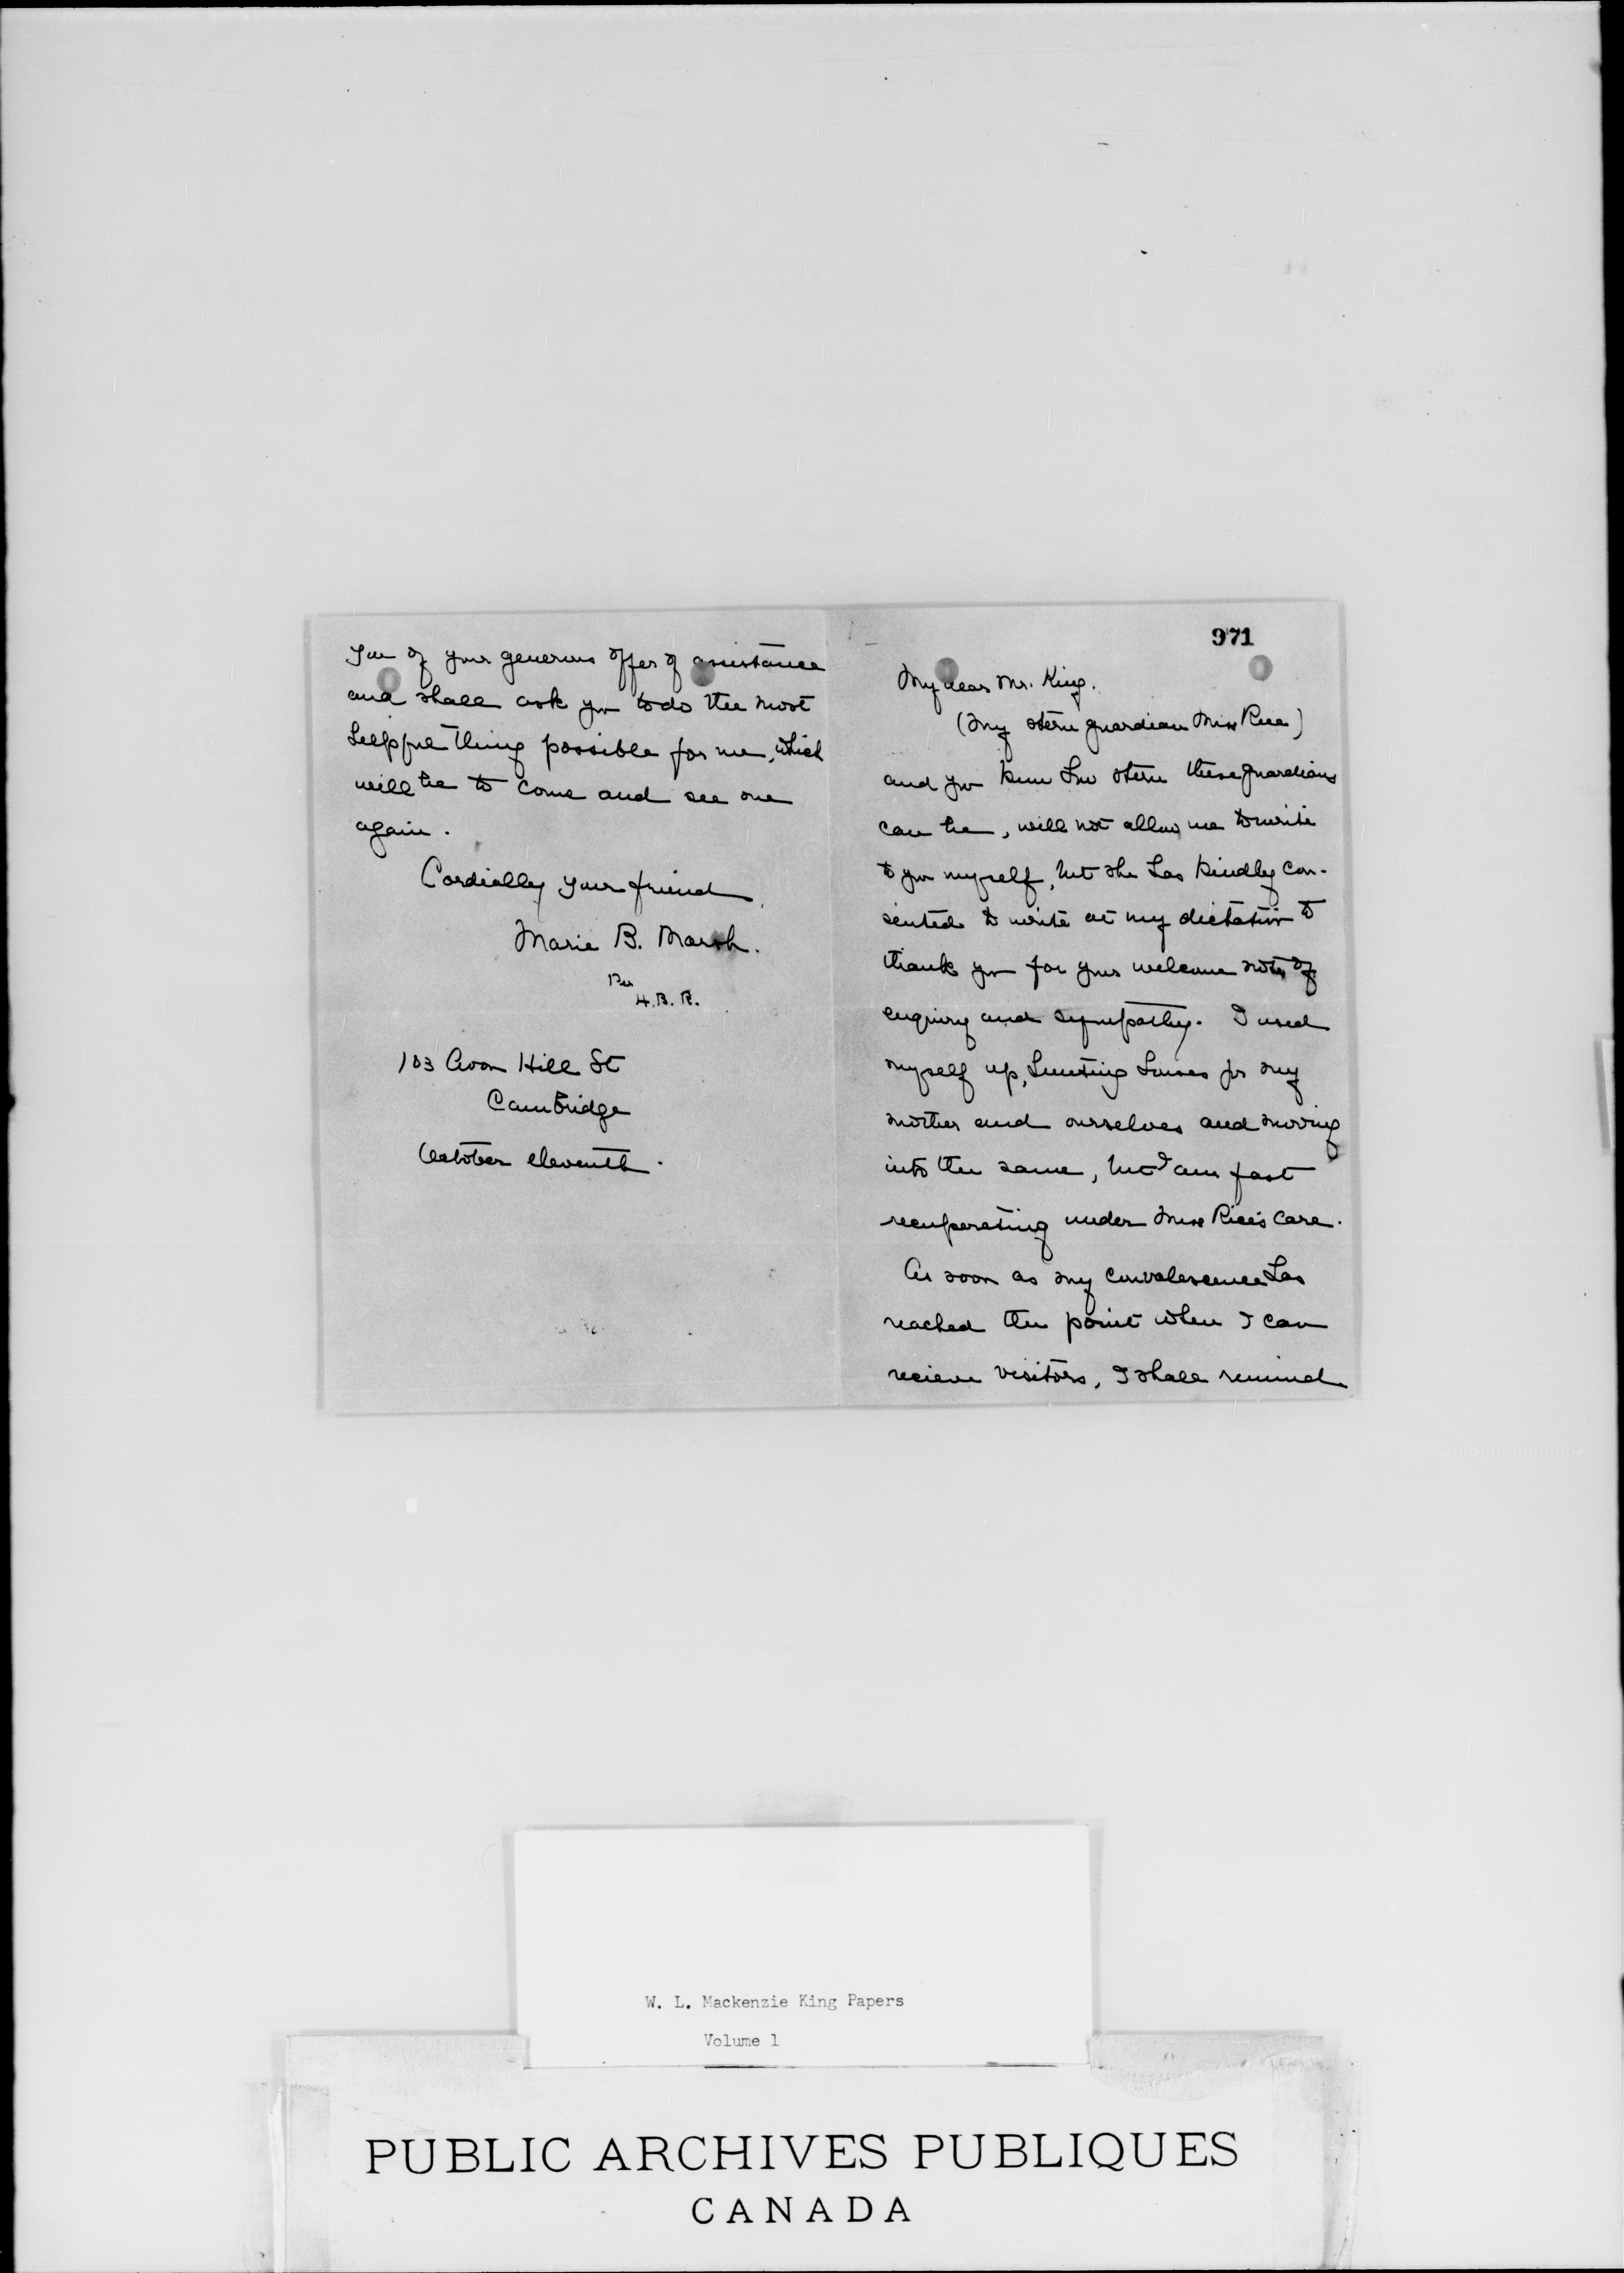 971
My dear Mr. King.
(My stern guardian Miss Rice)
and you know how stern these guardians
can be, will not allow me to write
to you myself, but she has kindly con-
sented to write at my dictation to
thank you for your welcome note of
enquiry and sympathy. I used
myself up, hunting houses for my
mother and ourselves and moving
into the same, but I am fast
recuperating under Miss Rice's care.
As soon as my convalescence has
reached the point when I can
recieve visitors, I shall remind
you of your generous offer of assistance
and shall ask you to do the most
helpful thing possible for me, which
will be to come and see me
again.
Cordially your friend,
Marie B. Marsh.
Per
H.B.R.
103 Avon Hill St
Cambridge
October eleventh.
W. L. Mackenzie King Papers
Volume 1
PUBLIC ARCHIVES PUBLIQUES
CANADA